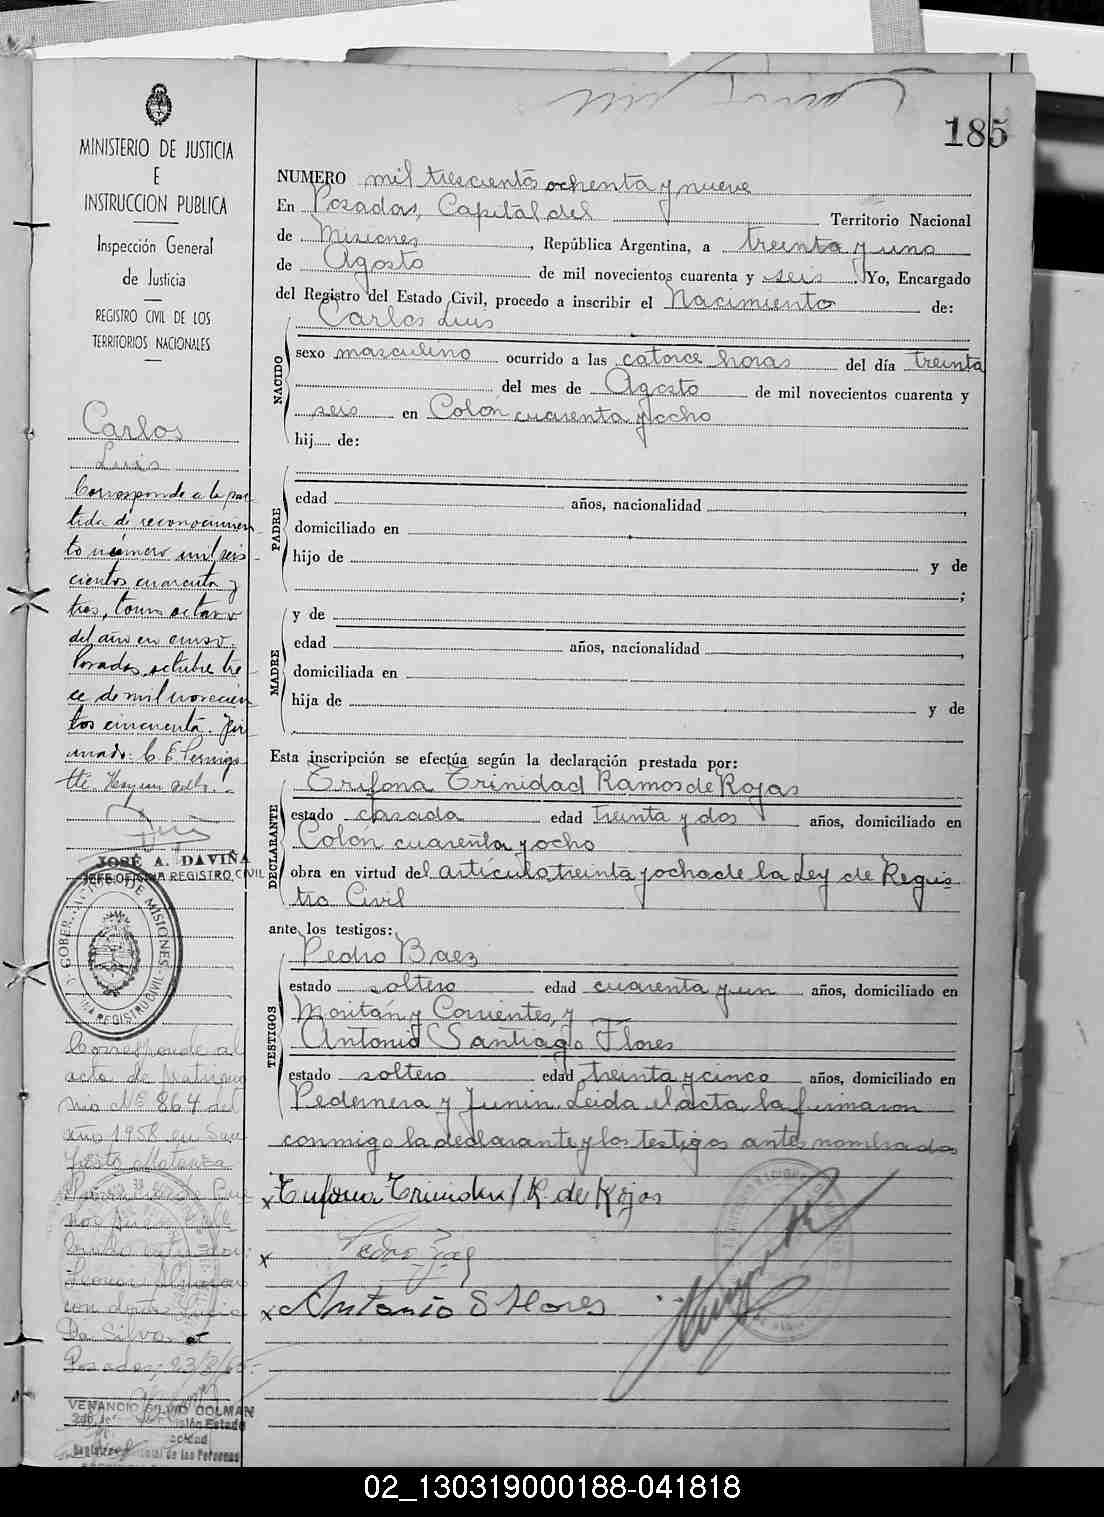 185
MINISTERIO DE JUSTICIA
E
INSTRUCCION PUBLICA
Inspección General
de Justicia
REGISTRO CIVIL DE LOS
TERRITORIOS NACIONALES
Carlos
Luis
Corresponde a la par
tida de reconocimien
to número mil seis
cientos cuarenta y
tres, tomo octavo
del año en curso.
Posadas, octubre tre
ce de mil novecien
tos cincuenta. Fir
mado: C. E. Pernigo
tti. Hay un sello.
JOSÉ A. DAVIÑA
JEFE OFICINA REGISTRO CIVIL
Corresponde al
acta de matrimo
nio Nº 864 del
año 1958 en San
Justo Matanza
Da Silva
Posadas, 23/8/65
VENANCIO SILVIO DOLMAN
NUMERO mil trescientos ochenta y nueve
En Posadas, Capital del Territorio Nacional
de Misiones, República Argentina, a treinta y uno
de Agosto de mil novecientos cuarenta y seis. Yo, Encargado
del Registro del Estado Civil, procedo a inscribir el Nacimiento de:
NACIDO
Carlos Luis
sexo masculino ocurrido a las catorce horas del día treinta
del mes de Agosto de mil novecientos cuarenta y
seis en Colón cuarenta y ocho
hij de:
PADRE
edad años, nacionalidad
domiciliado en
hijo de y de
;
MADRE
y de
edad años, nacionalidad
domiciliada en
hija de y de
Esta inscripción se efectúa según la declaración prestada por:
DECLARANTE
Trifona Trinidad Ramos de Rojas
estado casada edad treinta y dos años, domiciliado en
Colón cuarenta y ocho
obra en virtud del artículo treinta y ocho de la Ley de Regis
tro Civil
ante los testigos:
TESTIGOS
Pedro Baez
estado soltero edad cuarenta y un años, domiciliado en
Moritán y Corrientes, y
Antonio Santiago Flores
estado soltero edad treinta y cinco años, domiciliado en
Pedernera y Junin. Leida el acta, la firmaron
conmigo la declarante y los testigos antes nombrados
x Trifona Trinidad R. de Rojas
x Pedro Baez
x Antonio S Flores
02_130319000188-041818